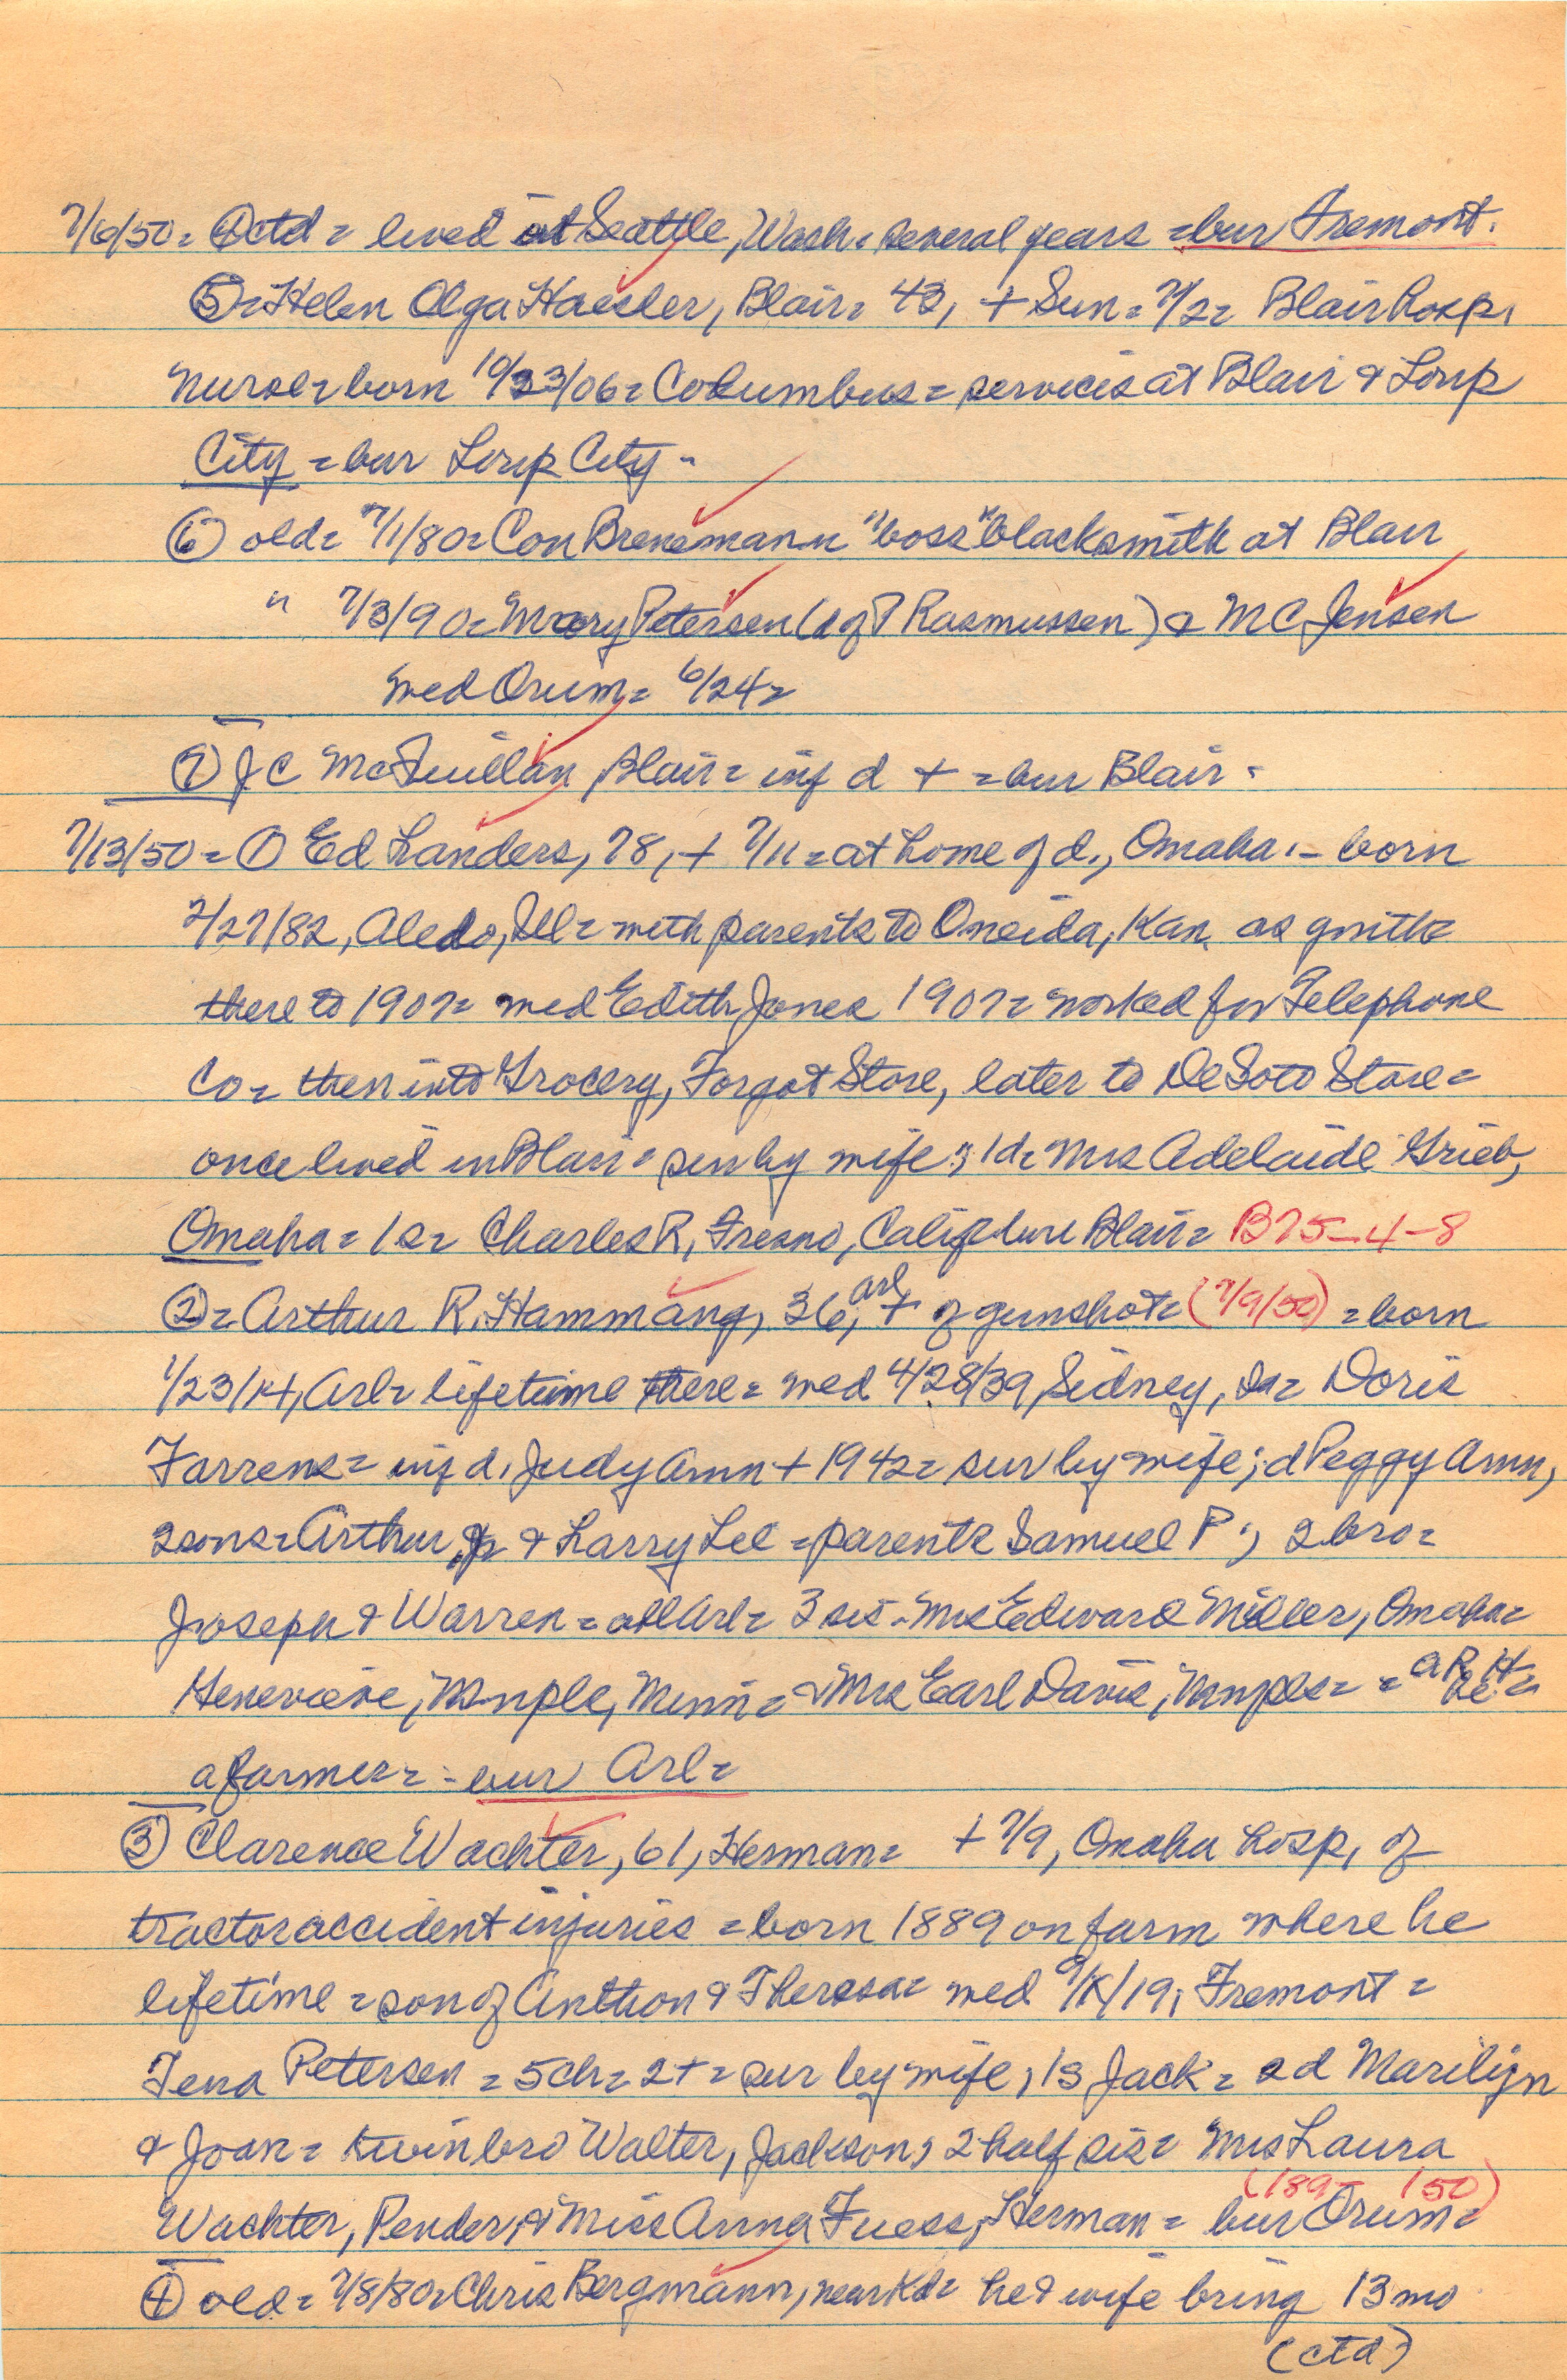 7/6/50 = ④ ctd = lived at Seattle, Wash. several years = bur Fremont.
⑤ = Helen Olga Haesler, Blair = 43, + Sun = 7/2 = Blair hosp.
nurse = born 10/23/06 = Columbus = services at Blair & Loup
City = bur Loup City -
⑥ old = 7/1/80 = Con Brenemann "boss" blacksmith at Blair
" 7/3/90 = Mary Petersen (d of P Rasmussen) & M C Jensen
med Orum = 6/24 =
⑦ J C McQuillan, Blair = inf d + = bur Blair -
7/13/50 = ① Ed Landers, 78, + 7/11 = at home of d., Omaha. - born
2/27/82, Aledo, Ill = with parents to Oneida, Kan. as
there to 1907 = med Edith Jones 1907 = worked for Telephone
Co = then into Grocery, Forgot Store, later to DeSoto Store =
once lived in Blair = sur by wife; 1 d = Mrs Adelaide Grieb,
Omaha = 1 s = Charles R, Fresno, Calif = bur Blair = B75-4-8
② = Arthur R. Hammang, 36, Arl + of gunshot = (7/9/50) = born
1/23/14, Arl = lifetime there = med 4/28/39, Sidney, Ia = Doris
Farrens = inf d, Judy Ann + 1942 = sur by wife; d Peggy Ann,
2 sons = Arthur, Jr & Larry Lee = parents Samuel P; 2 bro =
Joseph & Warren = all Arl = 3 sis - Mrs Edward Miller, Omaha =
Genevieve, Mnpls, Minn = & Mrs Earl Davis, Mnpls = = A R H he =
a farmer = - bur Arl =
③ Clarence Wachter, 61, Herman = + 7/9, Omaha hosp, of
tractor accident injuries = born 1889 on farm where he
lifetime = son of Anthon & Theresa = med 9/ /19, Fremont =
Tena Petersen = 5 ch = 2 + = sur by wife, 1 s Jack = 2 d Marilyn
& Joan = twin bro Walter, Jackson; 2 half sis = Mrs Laura
Wachter, Pender, & Miss Anna Fuess, Herman = bur Orum = (189- /50)
④ old = 7/8/80 = Chris Bergmann, near Kd = he & wife bring 13 mo
(ctd)